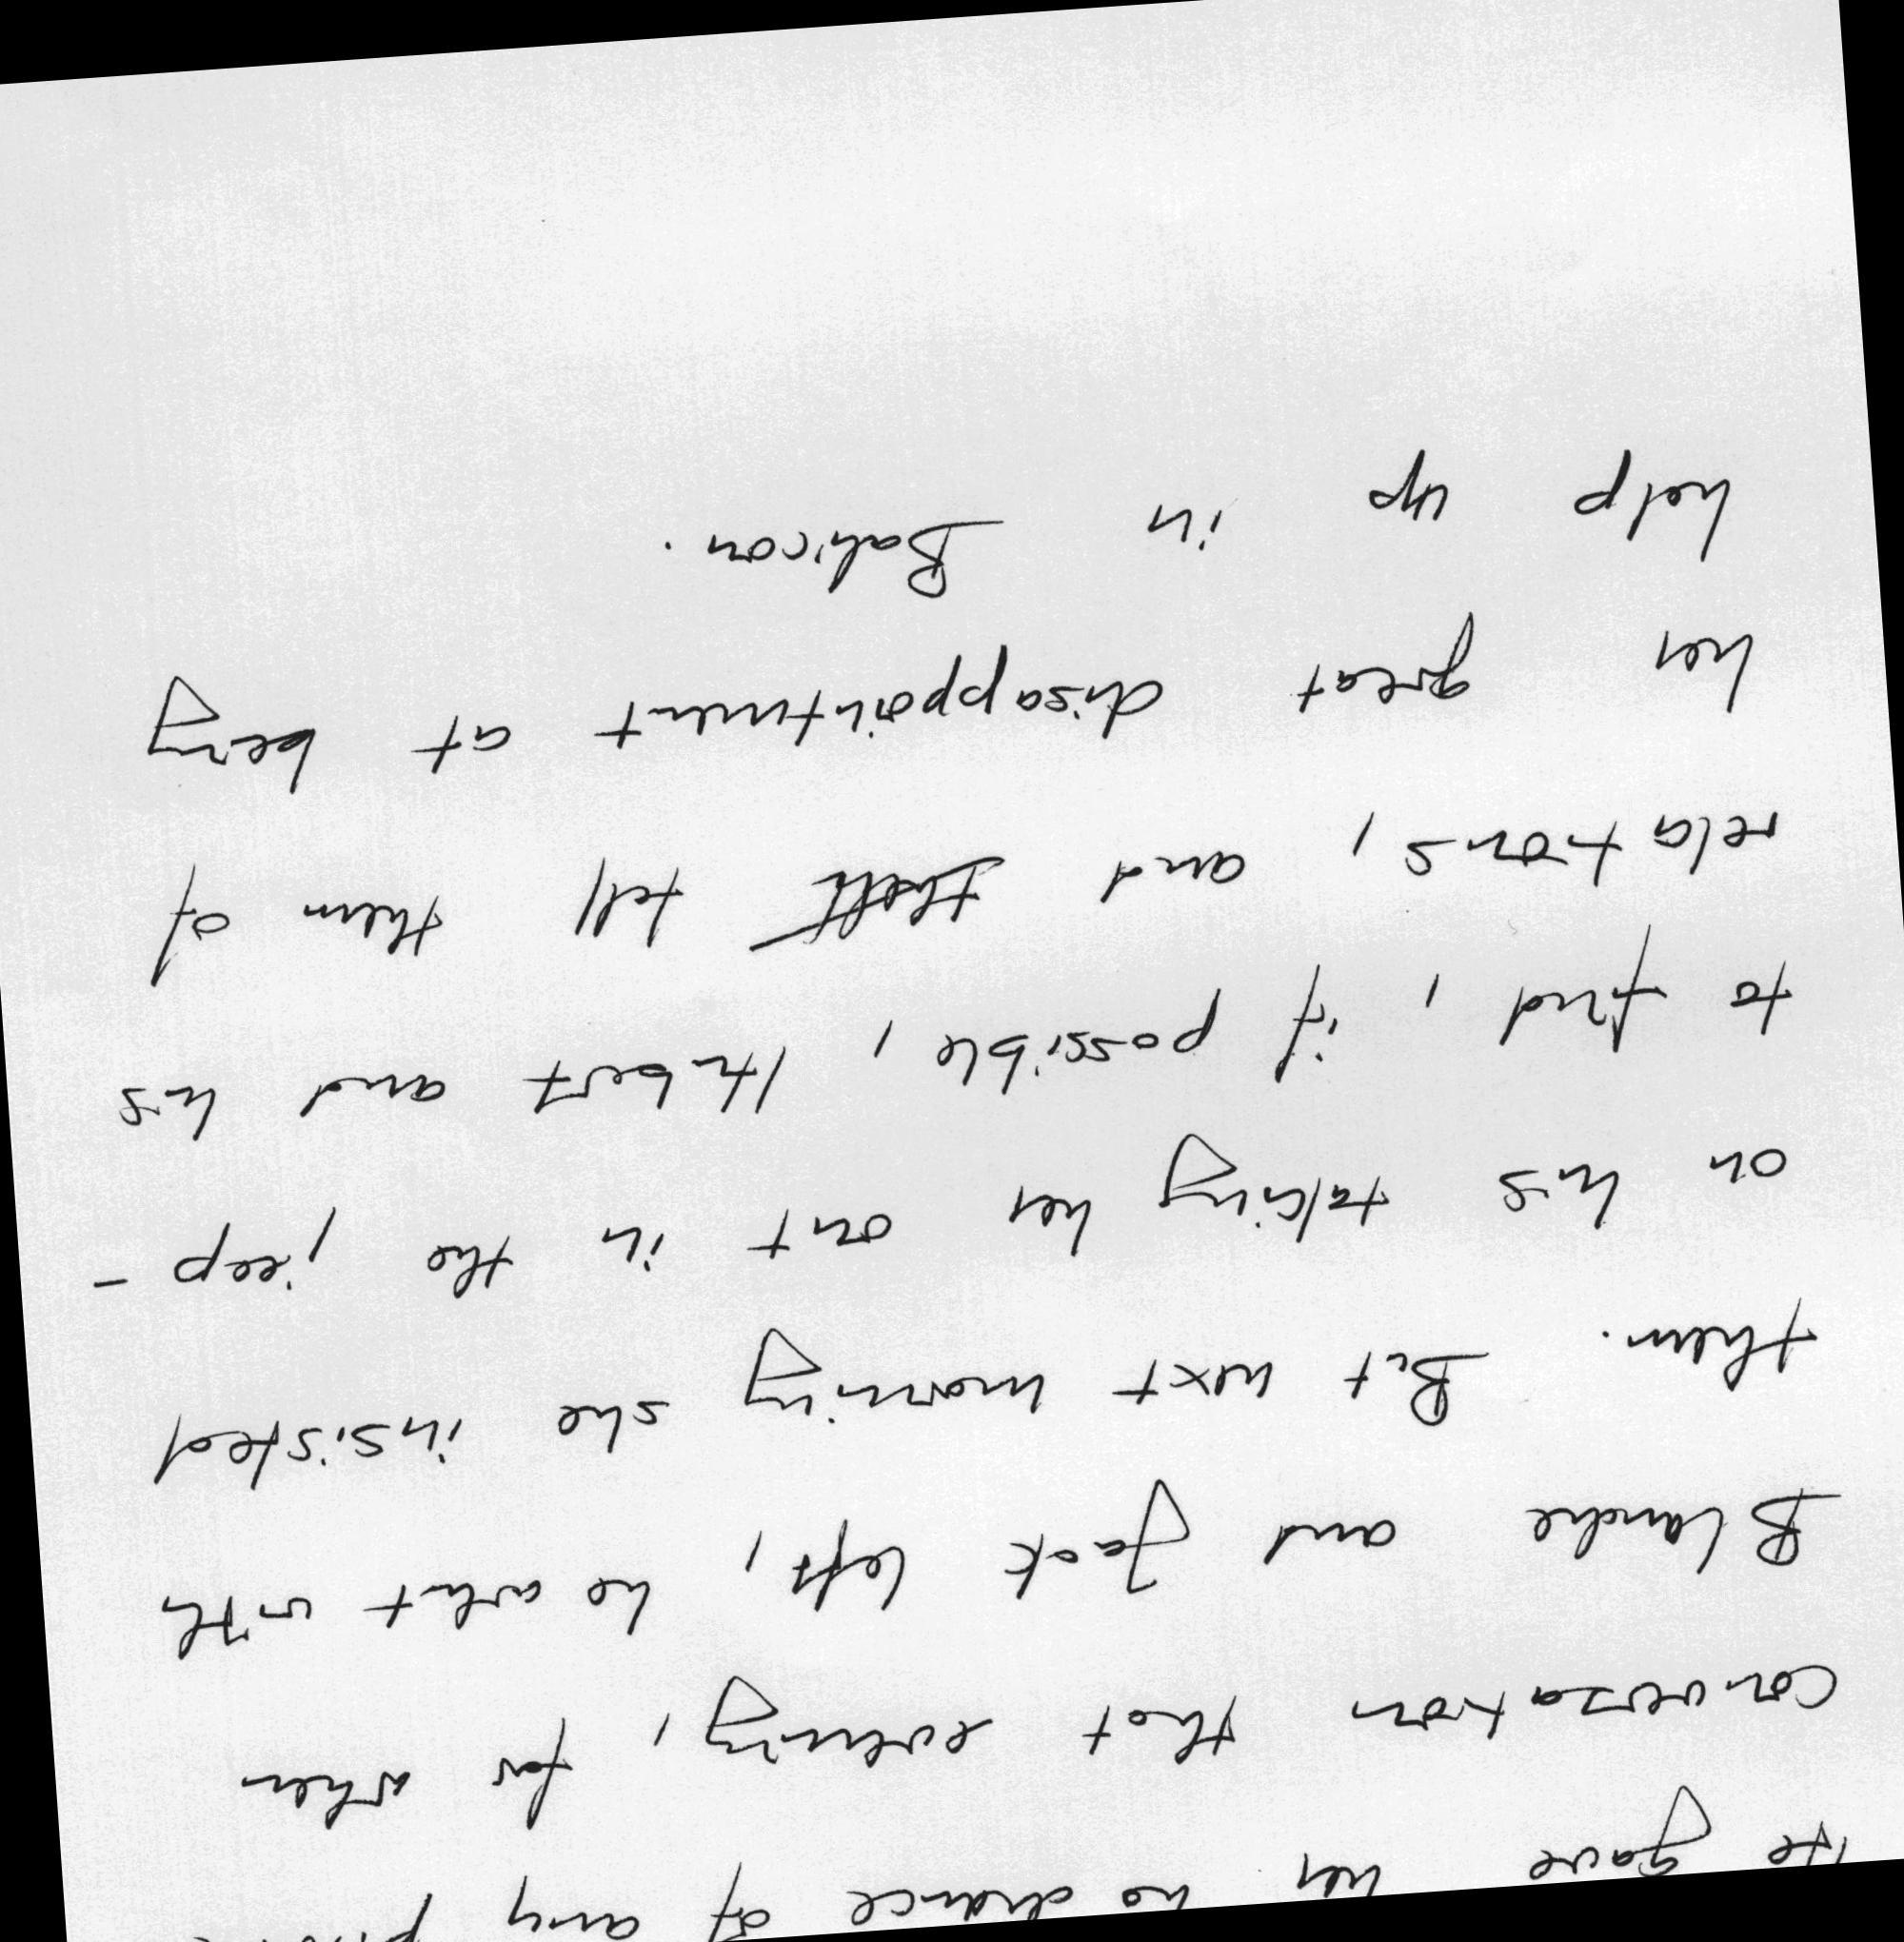 He gave her no chance of any
conversation that evening, for when
Blanche and Jack left, he what with
them. But next morning she insisted
on his taking her out in the jeep -
to find, if possible, Hubert and his
relations, and tell them of
her great disappointment at being
help up in Bahicon.